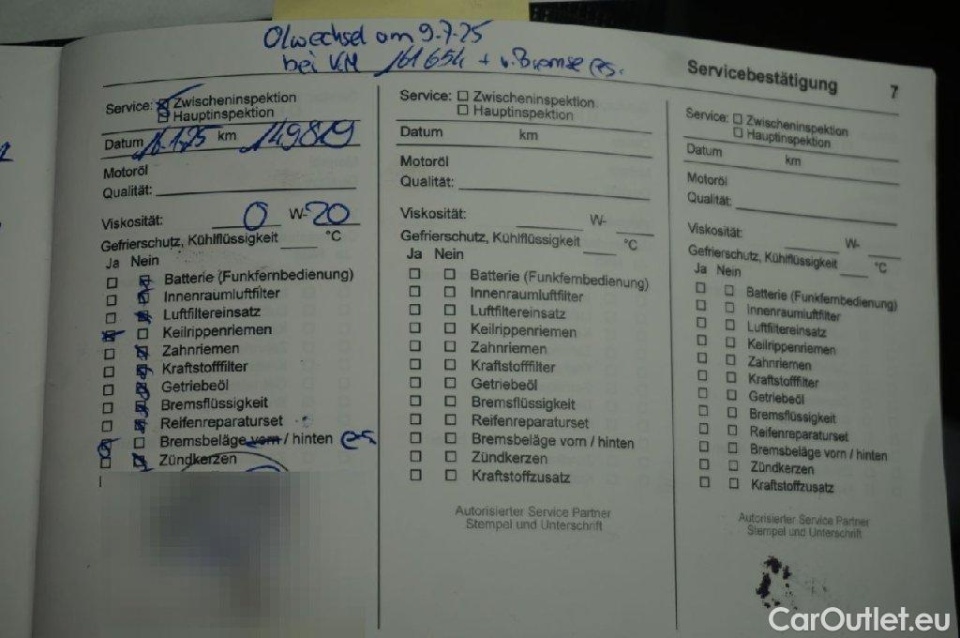 Olwechsel am 9.7.25
bei KM 161654 + v. Bremse es.
Servicebestätigung 7
Service: Zwischeninspektion
Hauptinspektion
Datum 16.1.25 km 149819
Motoröl
Qualität:
Viskosität: 0 W-20
Gefrierschutz, Kühlflüssigkeit °C
Ja Nein
Batterie (Funkfernbedienung)
Innenraumluftfilter
Luftfiltereinsatz
Keilrippenriemen
Zahnriemen
Kraftstofffilter
Getriebeöl
Bremsflüssigkeit
Reifenreparaturset
Bremsbeläge vorn / hinten es
Zündkerzen
Service: Zwischeninspektion
Hauptinspektion
Datum km
Motoröl
Qualität:
Viskosität: W-
Gefrierschutz, Kühlflüssigkeit °C
Ja Nein
Batterie (Funkfernbedienung)
Innenraumluftfilter
Luftfiltereinsatz
Keilrippenriemen
Zahnriemen
Kraftstofffilter
Getriebeöl
Bremsflüssigkeit
Reifenreparaturset
Bremsbeläge vorn / hinten
Zündkerzen
Kraftstoffzusatz
Autorisierter Service Partner
Stempel und Unterschrift
Service: Zwischeninspektion
Hauptinspektion
Datum km
Motoröl
Qualität:
Viskosität: W-
Gefrierschutz, Kühlflüssigkeit °C
Ja Nein
Batterie (Funkfernbedienung)
Innenraumluftfilter
Luftfiltereinsatz
Keilrippenriemen
Zahnriemen
Kraftstofffilter
Getriebeöl
Bremsflüssigkeit
Reifenreparaturset
Bremsbeläge vorn / hinten
Zündkerzen
Kraftstoffzusatz
Autorisierter Service Partner
Stempel und Unterschrift
CarOutlet.eu